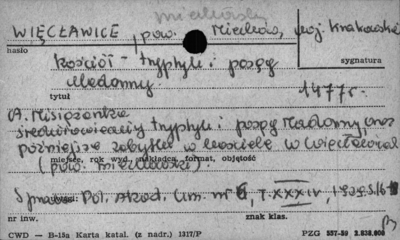 miechowski
WIĘCŁAWICE, pow. Miechów, woj. Krakowskie
hasło
sygnatura
kościół - tryptyk i posąg
Madonny.
1477r.
tytuł
A. Misiążanka
średniowieczny tryptyk i posąg Madonny oraz
późniejsze zabytki w kościele w Więcławicach
miejsce, rok wyd., nakładca, format, objętość
(pow. miechowski)
Sprawozd. Pol. Akad. Um. nr 6, T. XXXIV, 1929 s. 16
nr inw.
znak klas.
CWD — B-15a Karta katal. (z nadr.) 1317/P
PZG 557-59 2.838.000